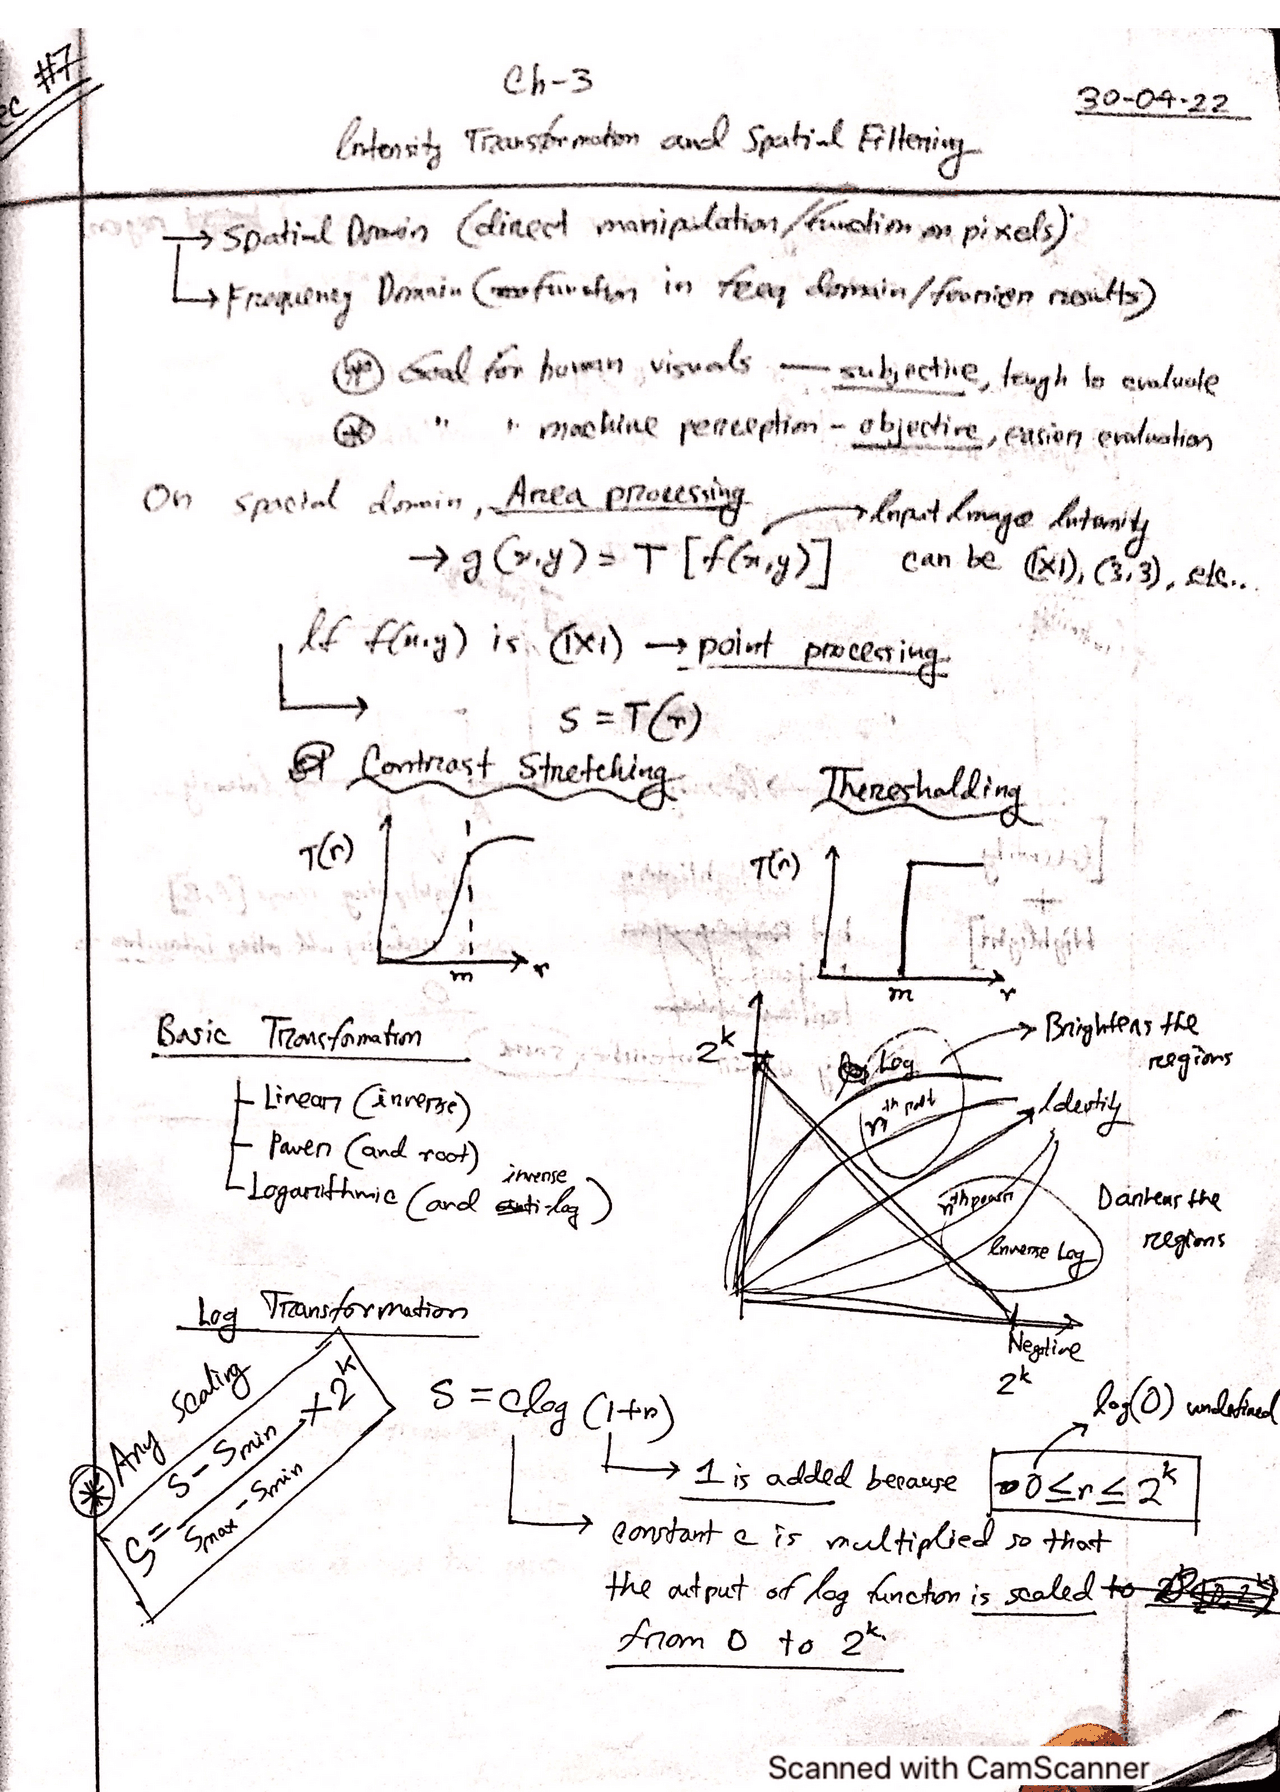 ec #7
Ch-3
30-04-22
Intensity Transformation and Spatial Filtering
→ Spatial Domain (direct manipulation/function on pixels)
→ Frequency Domain (function in freq domain/fourier results)
Goal for human visuals — subjective, tough to evaluate
" " machine perception - objective, easier evaluation
On spacial domain, Area processing
→ Input Image Intensity
→ g(x,y) = T [f(x,y)] can be (1x1), (3,3), etc...
If f(x,y) is (1x1) → point processing
S = T(r)
Contrast Stretching
Theresholding
T(r)
m
r
T(r)
m
r
Basic Transformation
Linear (inverse)
Power (and root)
inverse
Logarithmic (and anti-log)
2^k
Log
nth root
→ Brightens the regions
Identity
nth power
Inverse Log
Darkens the regions
Negative
2^k
Log Transformation
Any scaling
S = (S - Smin)/(Smax - Smin) × 2^k
S = clog (1+r)
log(0) undefined
→ 1 is added because 0 ≤ r ≤ 2^k
→ constant c is multiplied so that
the output of log function is scaled to
from 0 to 2^k.
Scanned with CamScanner